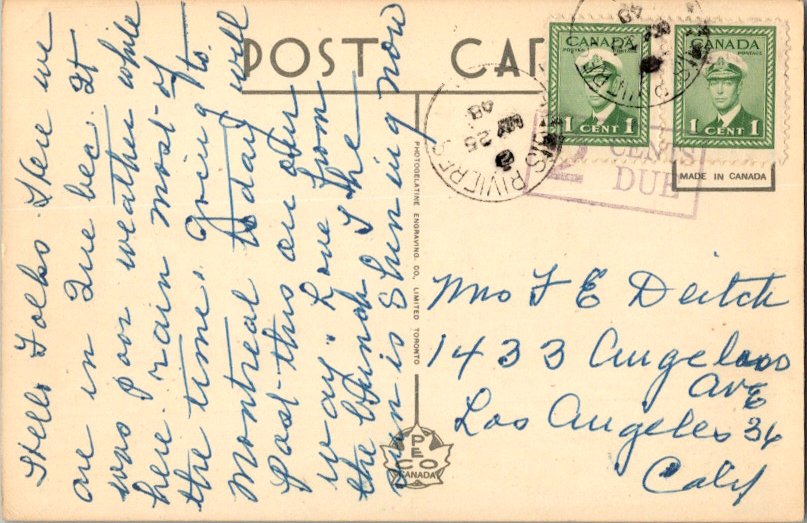 POST CA
Hello Folks. Here we
are in Quebec. It
was poor weather while
here. rain most of
the time. Going to
Montreal today will
Post this on our
way. Love from
the bunch. The
sun is shining now
PHOTOGELATINE ENGRAVING CO. LIMITED TORONTO
PECO
CANADA
CANADA
POSTES POSTAGE
1 CENT 1
CANADA
POSTES POSTAGE
1 CENT 1
MADE IN CANADA
CENTS
DUE
RIVIERES
25
48
RIVIERES
Mrs F E Deitch
1433 Angelus
Ave
Los Angeles 34
Calif